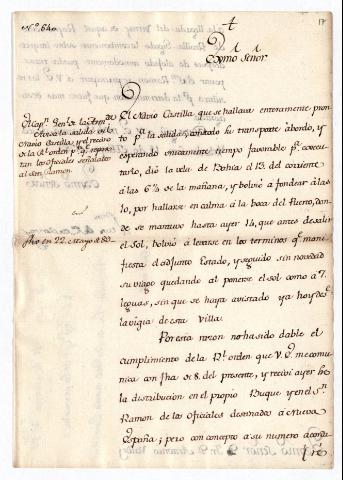 Nº 640
17
Exmo Señor
El Navio Castilla que se hallava enteramente pron
to pª la salida, alistado su transporte à bordo, y
esperando unicamente tiempo favorable pª execu
tarlo, diò la vela de Bahia el 13. del corriente
à las 6 de la mañana, y bolvió à fondear à las
10, por hallarse en calma à la boca del Puerto, don-
de se mantuvo hasta ayer 14, que antes de salir
el sol, bolvió à levarse en los terminos qº mani
fiesta el adjunto Estado, y seguido sin novedad
su viage quedando al ponerse el sol como à 7.
leguas, sin que se haya avistado ya hoy desde
la vigia de esta Villa.
Por esta razon no ha sido dable el
cumplimiento de la Rl orden que V. E. me comu
nica con fha de 8. del presente, y recivi ayer
la distribucion en el propio Buque y en el Sn
Ramon de los Oficiales destinados à Nueva
España; pero con concepto à su numero
El Capn Genl de la Armada
da la salida del
Navio Castilla, y el recivo
de la Rl orden pª qº repar
tan los Oficiales señalados
al San Ramon.
fho en 22. Mayo de 83